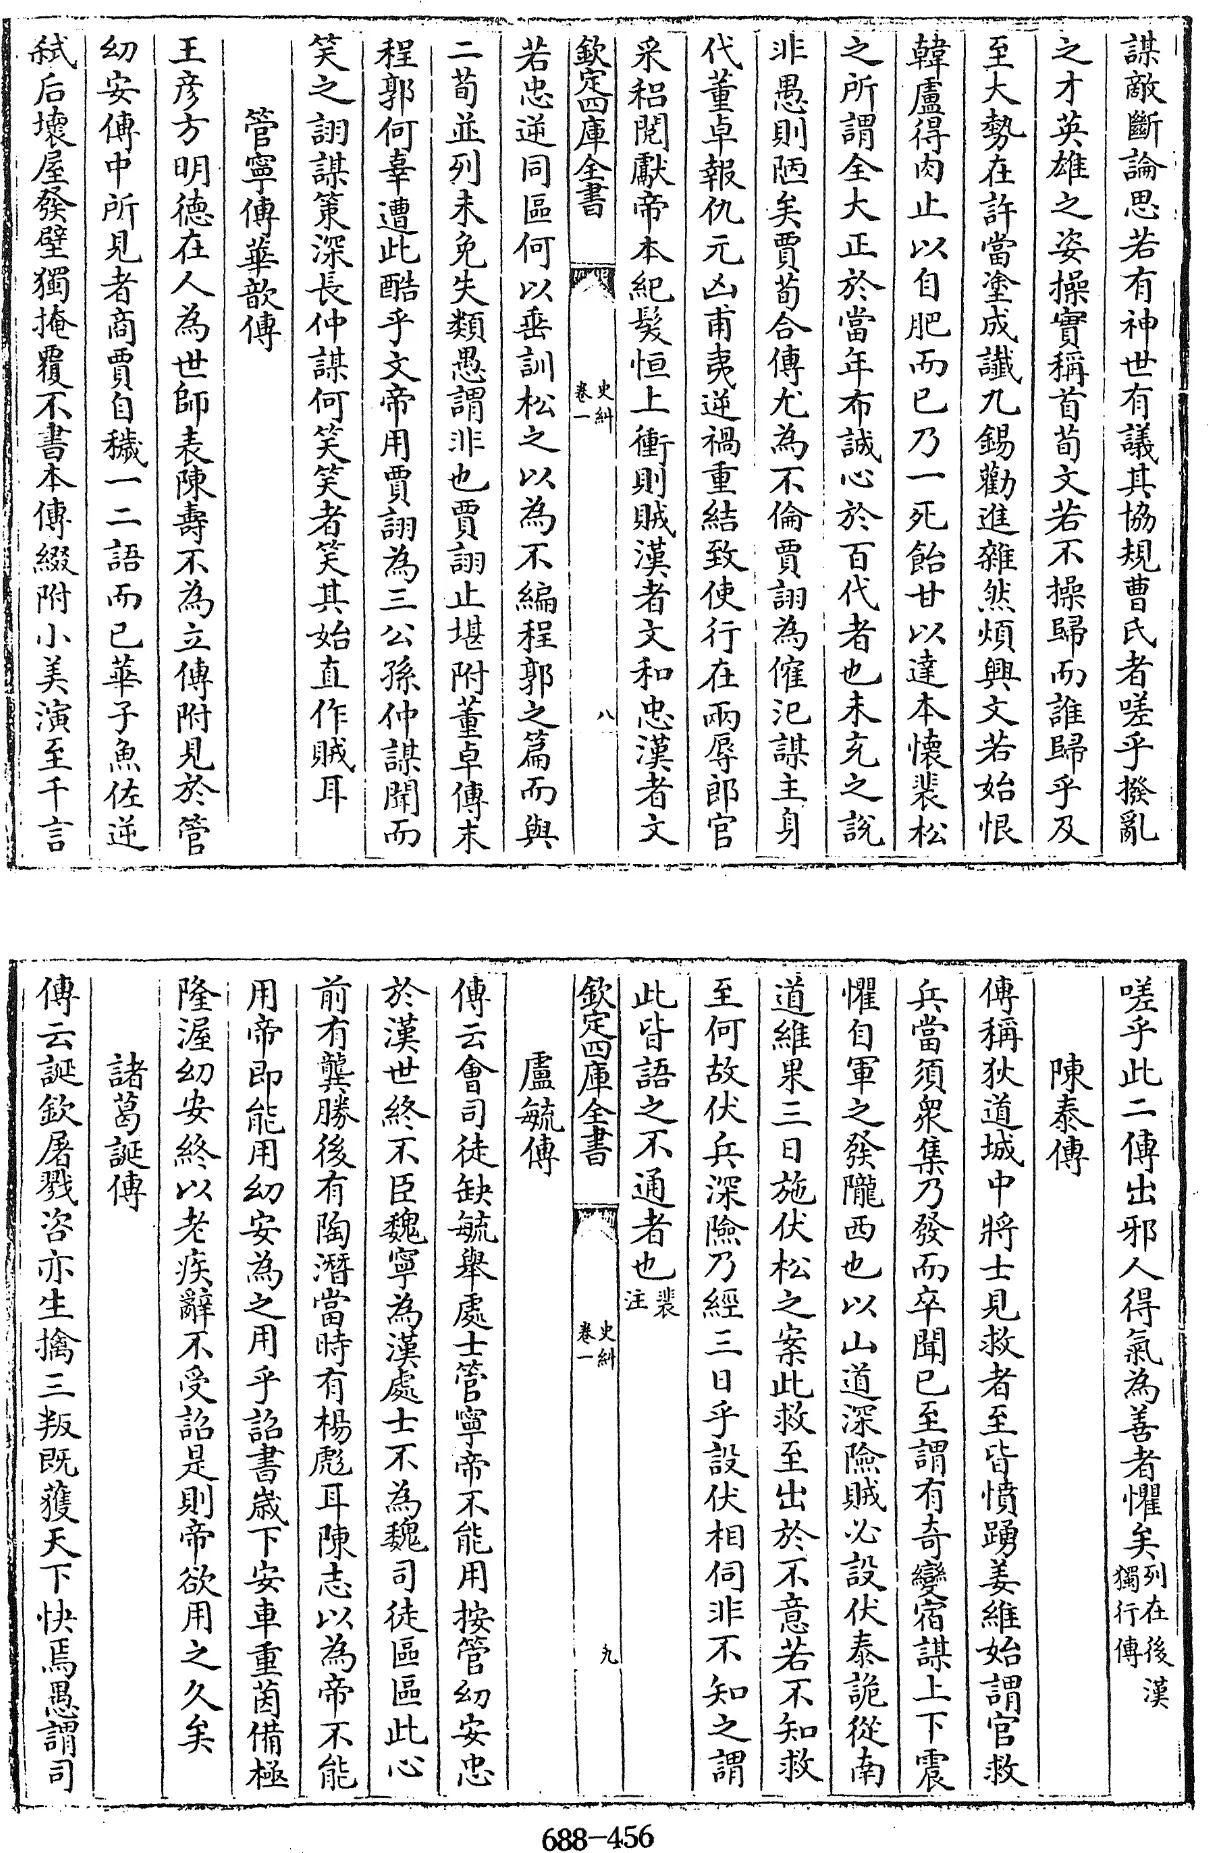 謀敵斷論思若有神世有議其協規曹氏者嗟乎撥亂
之才英雄之姿操實稱首荀文若不操歸而誰歸乎及
至大勢在許當塗成讖九錫勸進雜然煩興文若始恨
韓盧得肉止以自肥而已乃一死飴甘以達本懷裴松
之所謂全大正於當年布誠心於百代者也未克之說
非愚則陋矣賈荀合傳尤為不倫賈詡為傕汜謀主身
代董卓報仇元凶甫夷逆禍重結致使行在兩辱郎官
采稆閱獻帝本紀髮恒上衝則賊漢者文和忠漢者文
欽定四庫全書
史糾
卷一
八
若忠逆同區何以垂訓松之以為不編程郭之篇而與
二荀並列未免失類愚謂非也賈詡止堪附董卓傳末
程郭何辜遭此酷乎文帝用賈詡為三公孫仲謀聞而
笑之詡謀策深長仲謀何笑笑者笑其始直作賊耳
管寧傳華歆傳
王彥方明德在人為世師表陳壽不為立傳附見於管
幼安傳中所見者商賈自穢一二語而已華子魚佐逆
弒后壞屋發壁獨掩覆不書本傳綴附小美演至千言
嗟乎此二傳出邪人得氣為善者懼矣列在後漢
獨行傳
陳泰傳
傳稱狄道城中將士見救者至皆憤踴姜維始謂官救
兵當須衆集乃發而卒聞已至謂有奇變宿謀上下震
懼自軍之發隴西也以山道深險賊必設伏泰詭從南
道維果三日施伏松之案此救至出於不意若不知救
至何故伏兵深險乃經三日乎設伏相伺非不知之謂
此皆語之不通者也裴
注
欽定四庫全書
史糾
卷一
九
盧毓傳
傳云會司徒缺毓舉處士管寧帝不能用按管幼安忠
於漢世終不臣魏寧為漢處士不為魏司徒區區此心
前有龔勝後有陶潛當時有楊彪耳陳志以為帝不能
用帝即能用幼安為之用乎詔書歲下安車重茵備極
隆渥幼安終以老疾辭不受詔是則帝欲用之久矣
諸葛誕傳
傳云誕欽屠戮咨亦生擒三叛既獲天下快焉愚謂司
688-456